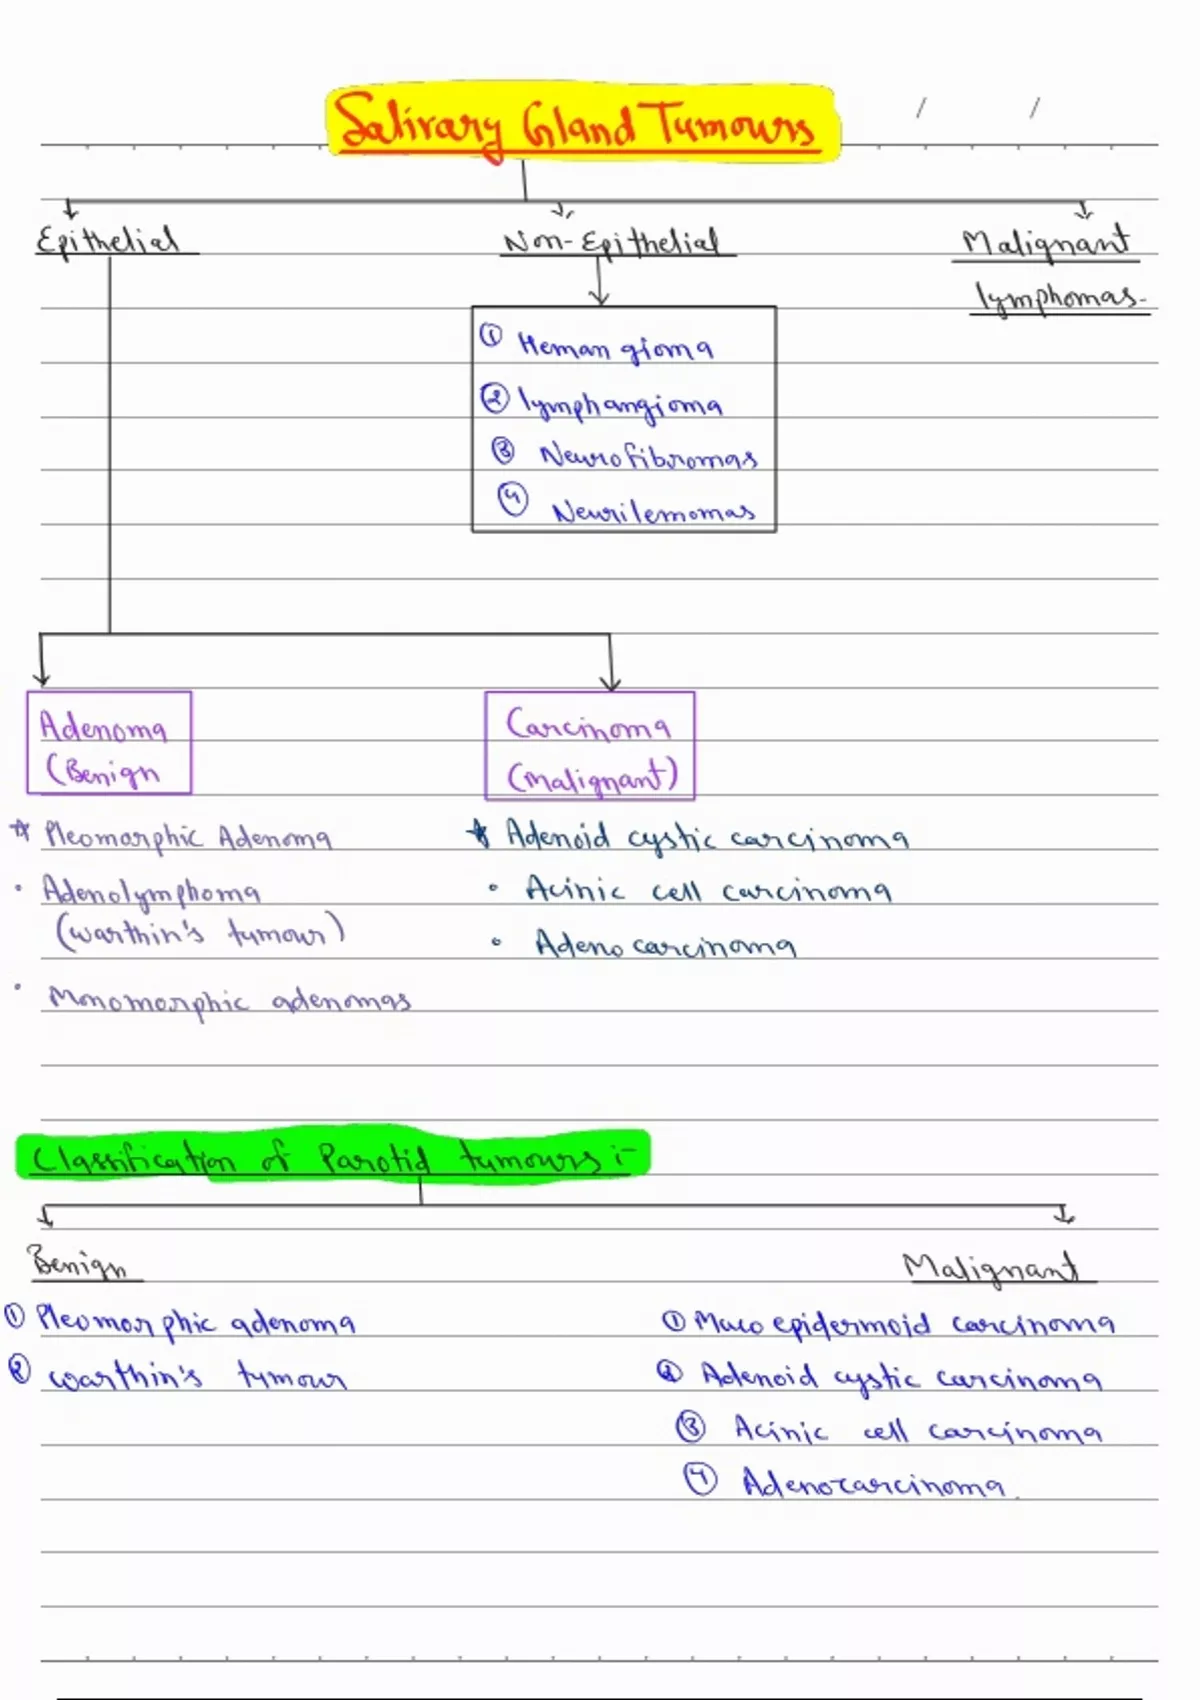 Salivary Gland Tumours
/ /
Epithelial Non-Epithelial Malignant
lymphomas-
① Heman gioma
② lymphangioma
③ Neurofibromas
④ Neurilemomas
Adenoma Carcinoma
(Benign (Malignant)
☆ Pleomorphic Adenoma ★ Adenoid cystic carcinoma
• Adenolymphoma • Acinic cell carcinoma
(warthin's tumour) • Adeno carcinoma
• Monomorphic adenomas
Classification of Parotid tumours :-
Benign Malignant
① Pleomorphic adenoma ① Muco epidermoid carcinoma
② warthin's tumour ② Adenoid cystic carcinoma
③ Acinic cell carcinoma
④ Adenocarcinoma.